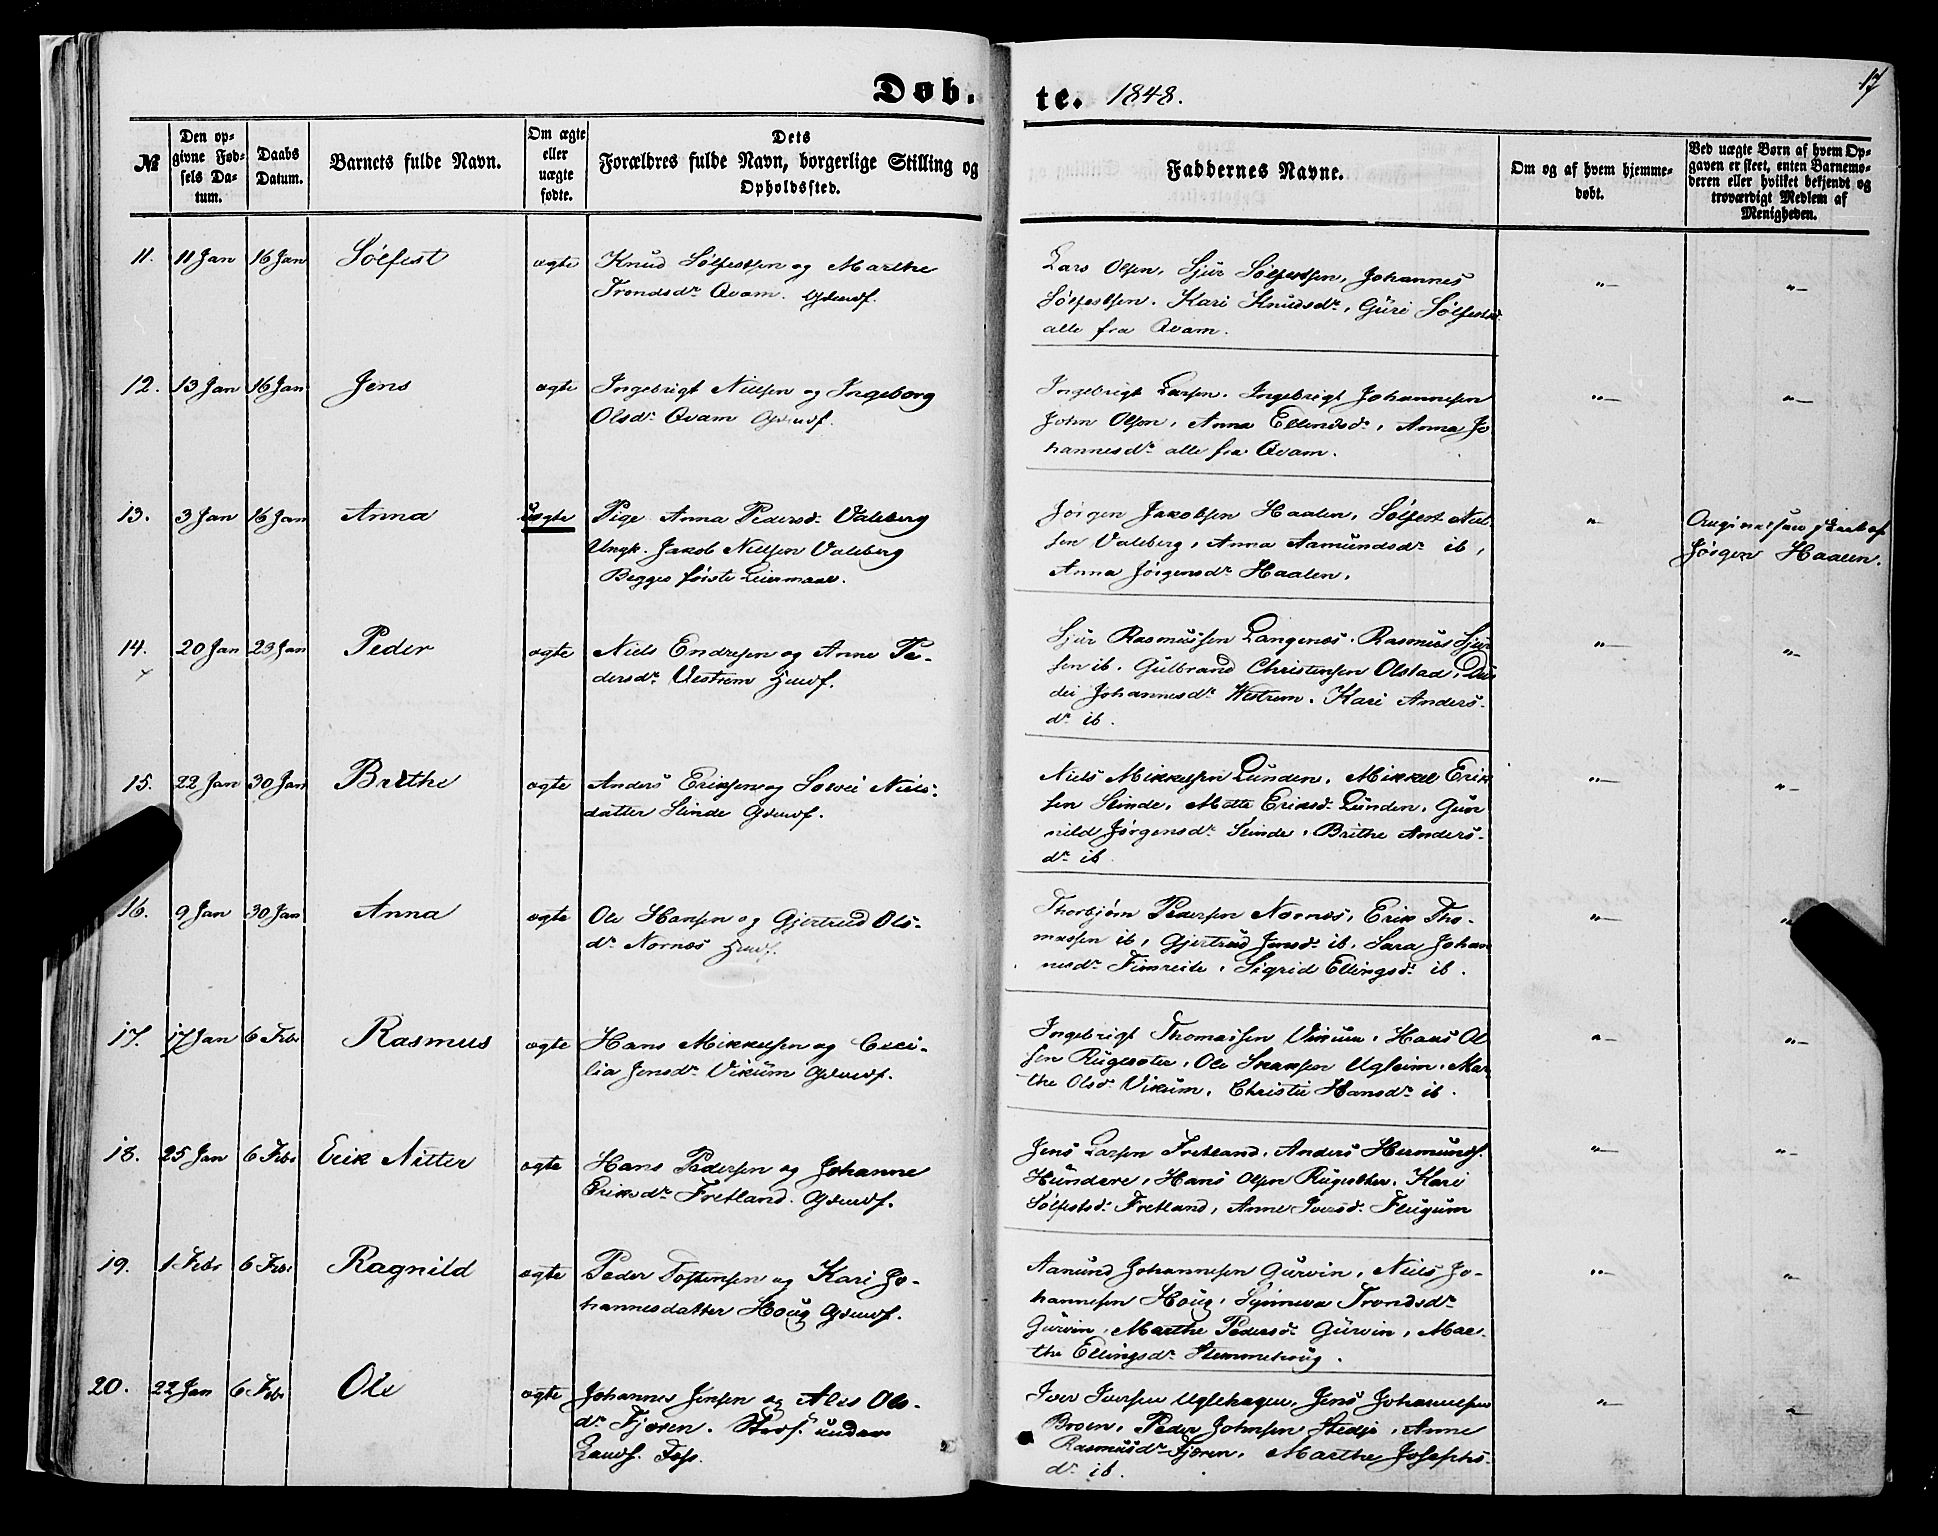 Døb.
te. 1848.
17
№
Den op-
givne Fød-
sels Da-
tum.
Daabs
Datum.
Barnets fulde Navn.
Om ægte
eller
uægte
fødte.
Dets
Forældres fulde Navn, borgerlige Stilling og
Opholdssted.
Faddernes Navne.
Om og af hvem hjemme-
døbt.
Ved uægte Børn af hvem Op-
gaven er skeet, enten Barnemo-
deren eller hvilket bekjendt og
troværdigt Medlem af
Menigheden.
11. 11 Jan 16 Jan Sølfest ægte
Knud Sølfestsen og Marthe
Trondsdr Qvam. Gbmdf.
Lars Olsen, Sjur Sølfestsen, Johannes
Sølfestsen. Kari Knudsdr, Guri Sølfestsdr
alle fra Qvam.
"— "—
12. 13 Jan 16 Jan Jens ægte
Ingebrigt Nielsen og Ingeborg
Olsdr Qvam Gbmdf.
Ingebrigt Larsen. Ingebrigt Johannesen
John Olsen, Anna Ellendsdr, Anna Jo
hannesdr alle fra Qvam.
"— "—
13. 3 Jan 16 Jan Anna Uægte
Pige Anna Pedersdr Valeberg
Ungk. Jakob Nielsen Valeberg
Begges første Leiermaal.
Jørgen Jakobsen Haalen, Sølfest Niel-
sen Valeberg, Anna Aamundsdr ib,
Anna Jørgensdr Haalen.
"—
Angivelsen skeet af
Jørgen Haalen.
14. 20 Jan 23 Jan Peder ægte
Niels Endresen og Anne Pe-
dersdr Vestrem
Sjur Rasmussen Langenæs. Rasmus Sjur
sen ib. Gulbrand Christensen Olstad,
Johannesdr Westrem. Kari Anders-
dr ib.
"— "—
15. 22 Jan 30 Jan Brithe ægte
Anders Eriksen og Sovei Niels-
datter Slinde Gbmdf.
Niels Mikkelsen Lunden. Mikkel Erik
sen Slinde, Mette Eriksdr Lunden, Gun
nild Jørgensdr Slinde, Brithe Anders-
dr ib
"— "—
16. 9 Jan 30 Jan Anna ægte
Ole Hansen og Gjertrud Ols-
dr Nornæs
Thorbjørn Pedersen Nornæs, Erik Tho-
massen ib, Gjertrud Jensdr ib. Sara Johan
nesdr Fimreite, Sigrid Ellingsdr ib.
"— "
17. 17 Jan 6 Febr Rasmus ægte
Hans Mikkelsen og Ceci-
lia Jensdr Vikum Gbmdf.
Ingebrigt Thomassen Vikum, Hans Ol
sen Rugesæter, Ole Ugleim. Mar-
the Olsdr Vikum, Christie Hansdr ib.
"— "—
18. 25 Jan 6 Febr Erik Nitter ægte
Hans Pedersen og Johanne
Eriksdr Fretland. Gbmdf.
Jens Larsen Fretland. Anders Hermunds.
Hundere, Hans Olsen Rugesæter. Kari
Sølfestsdr Fretland, Anne Iversdr Flugum
"— "—
19. 1 Febr 6 Febr Ragnild ægte
Peder Tostensen og Kari Jo-
hannesdatter Houg Gbmdf.
Aamund Johannesen Gurvin, Niels Jo-
hannesen Houg, Synneva Trondsdr
Gurvin, Marthe Pedersdr Gurvin, Mar-
the Ellingsdr Stemmehoug.
"— "—
20. 22 Jan 6 Febr Ole ægte
Johannes Jensen og Ales Ols-
dr Fjæren. under
Fos.
Iver Iversen Uglehagen, Jens Johannesen
Broen, Peder Johnsen Stedje, Anne
Rasmusdr Fjæren, Marthe Josephs-
dr ib.
"— "—